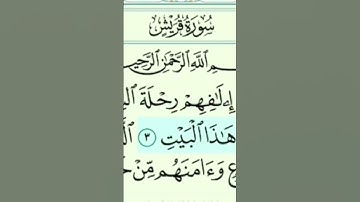 سُورَةُ قُرَيْشٍ
ـمِ اللَّهِ الرَّحْمَٰنِ الرَّحِيـ
إِۦلَٰفِهِمْ رِحْلَةَ
هَٰذَا الْبَيْتِ ٣
وَءَامَنَهُم مِّنْ